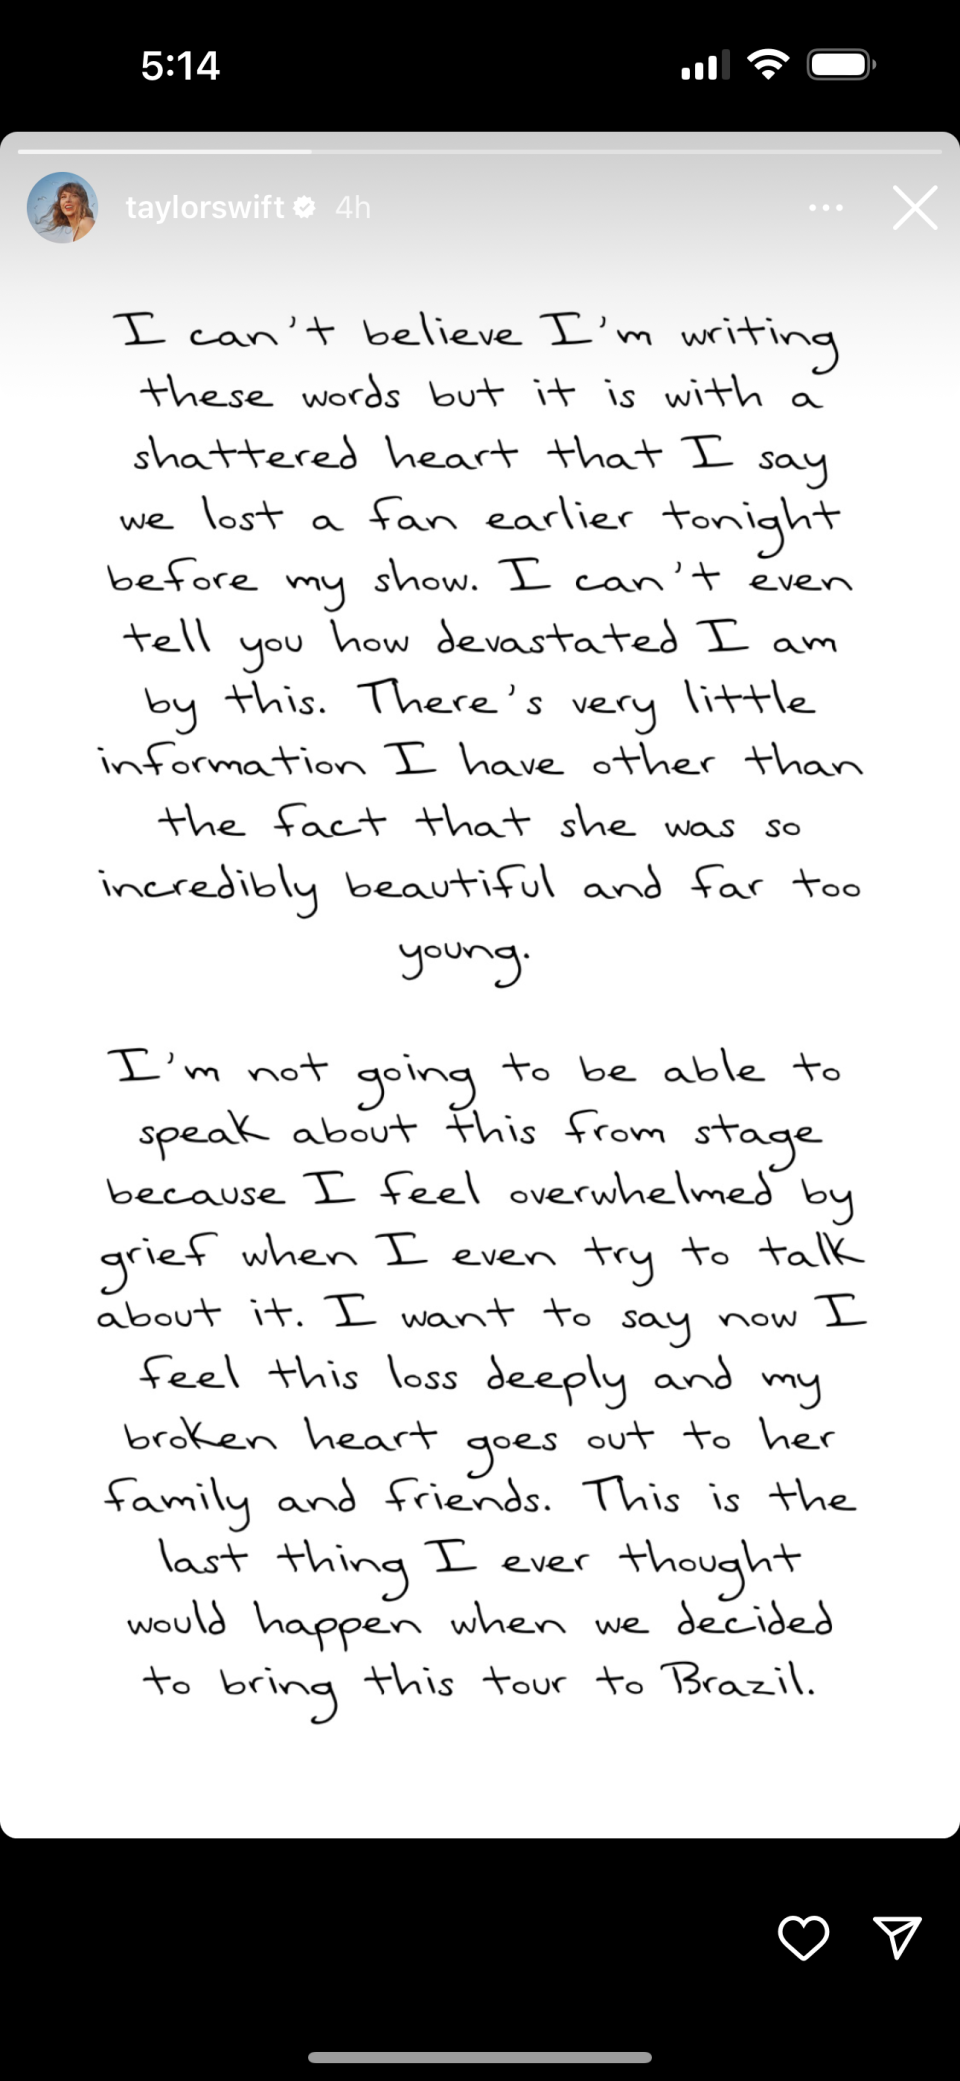 5:14
taylorswift 4h
I can't believe I'm writing
these words but it is with a
shattered heart that I say
we lost a fan earlier tonight
before my show. I can't even
tell you how devastated I am
by this. There's very little
information I have other than
the fact that she was so
incredibly beautiful and far too
young.
I'm not going to be able to
speak about this from stage
because I feel overwhelmed by
grief when I even try to talk
about it. I want to say now I
feel this loss deeply and my
broken heart goes out to her
family and friends. This is the
last thing I ever thought
would happen when we decided
to bring this tour to Brazil.